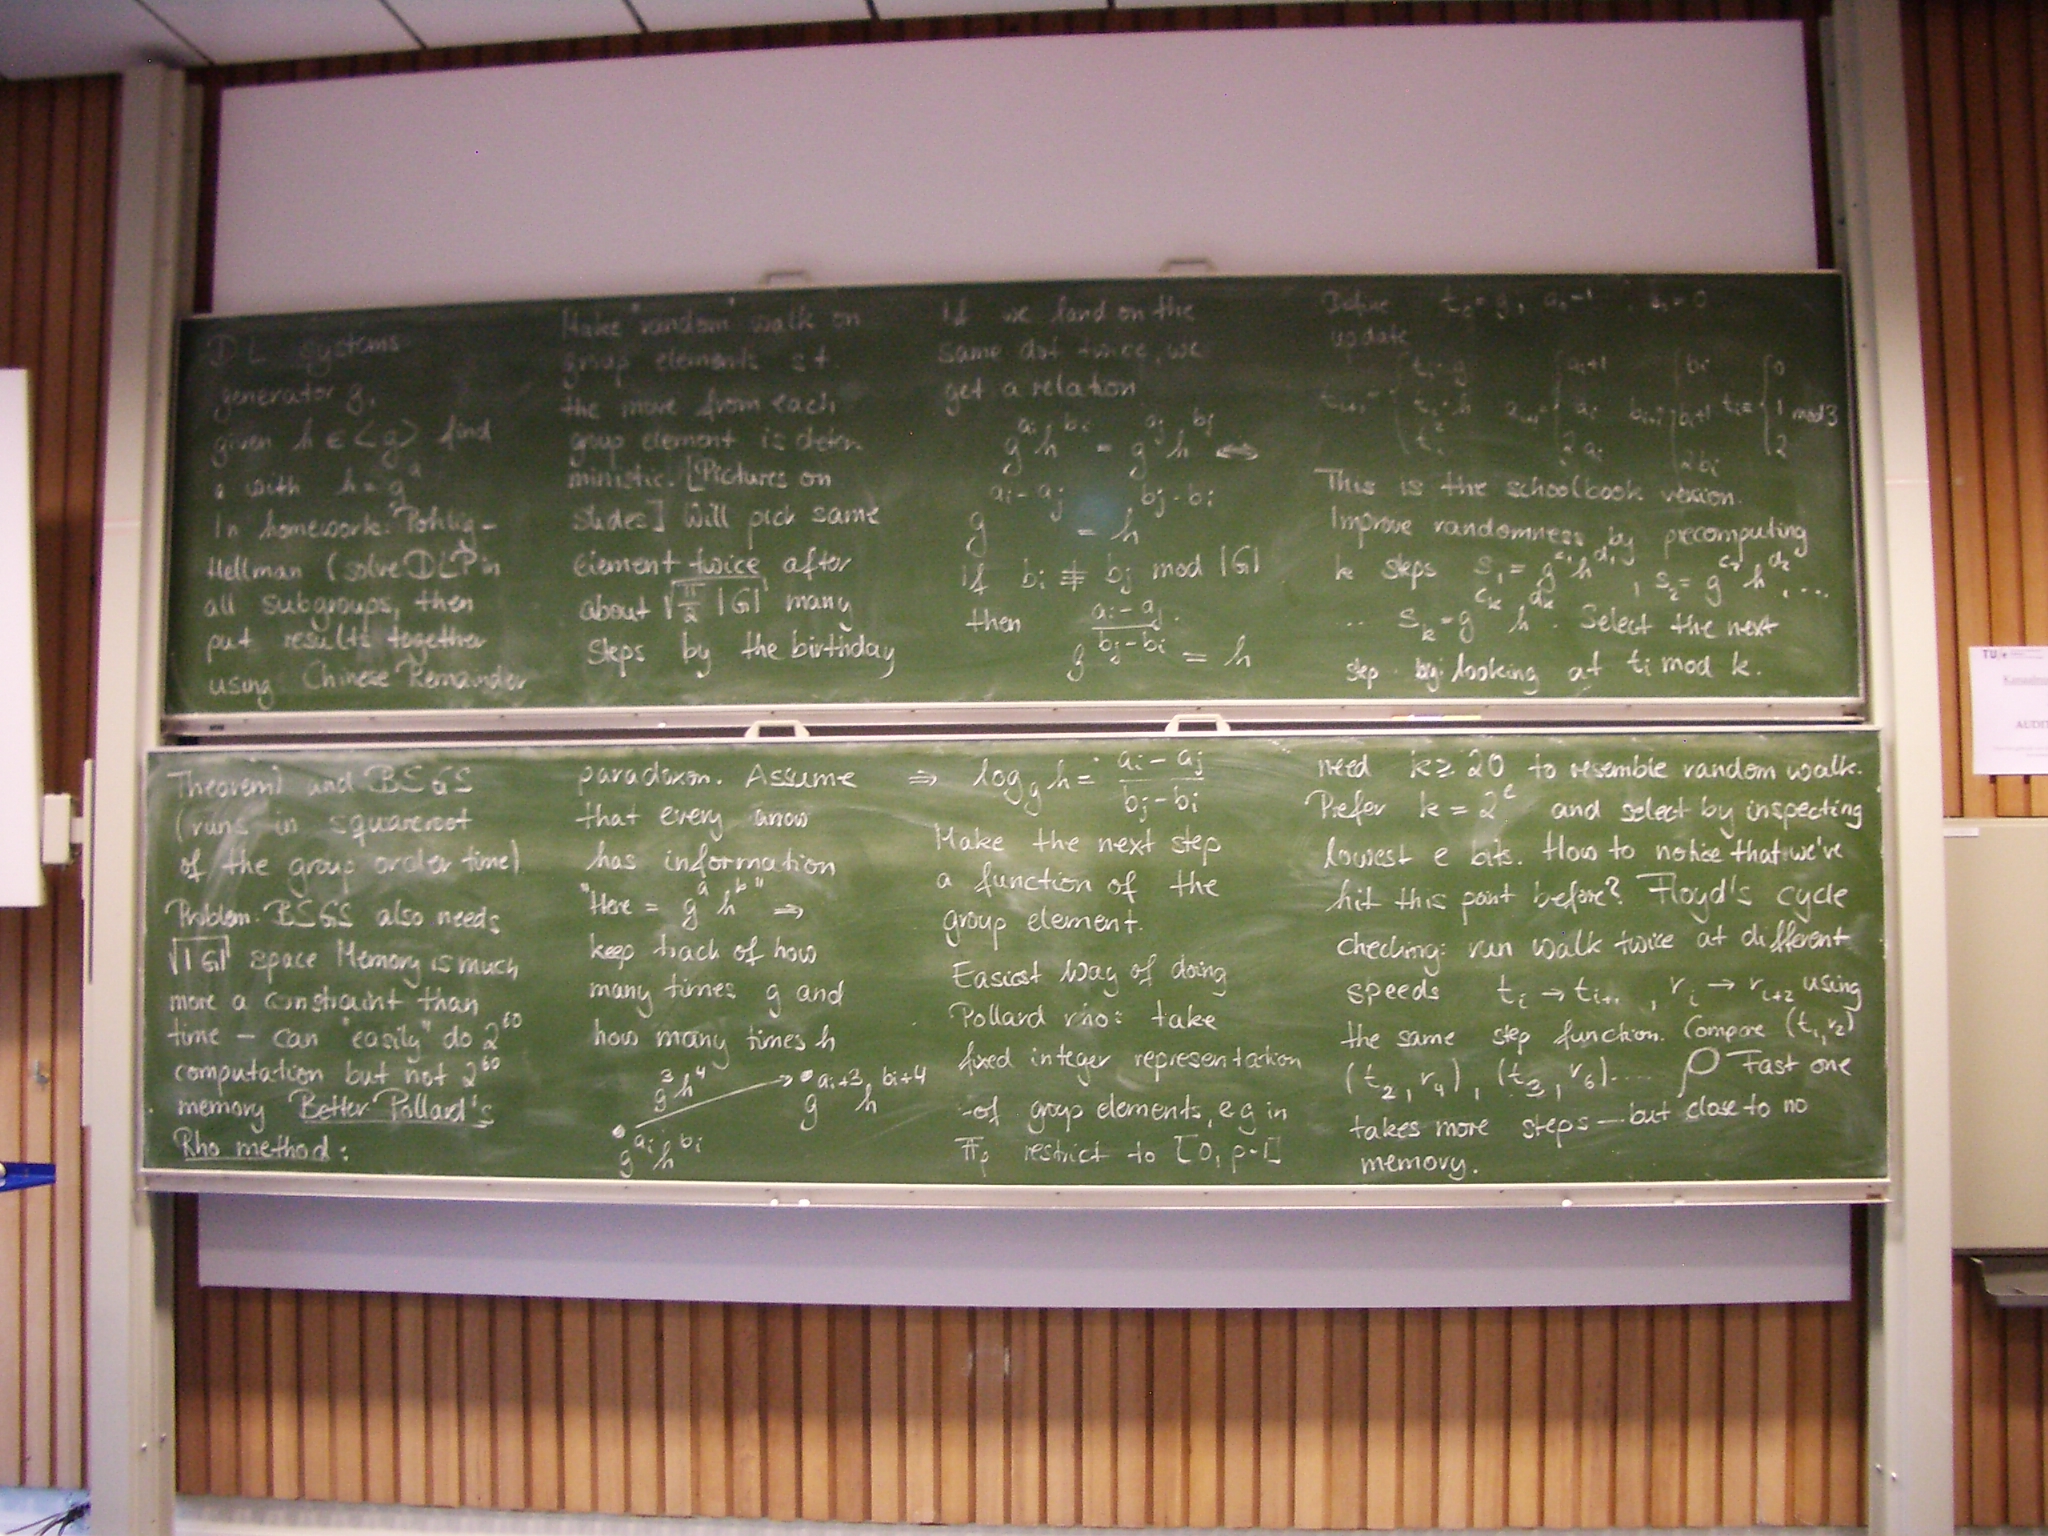 DL systems
generator g,
given h ∈ <g> find
a with h = g^a
In homework: Pohlig-
Hellman (solve DLP in
all subgroups, then
put results together
using Chinese Remainder
Theorem) and BSGS
(runs in squareroot
of the group order time)
Problem. BSGS also needs
√|G| space Memory is much
more a constraint than
time – can "easily" do 2^60
computation but not 2^60
memory Better Pollard's
Rho method:
Make "random" walk on
group elements s.t.
the move from each
group element is deter-
ministic. [Pictures on
slides] Will pick same
element twice after
about √(π/2 |G|) many
steps by the birthday
paradoxon. Assume
that every arrow
has information
"Here = g^a h^b" ⇒
keep track of how
many times g and
how many times h
g^3 h^4
g^(ai+3) h^(bi+4)
g^ai h^bi
If we land on the
same dot twice, we
get a relation
g^ai h^bi = g^aj h^bj ⇔
g^(ai-aj) = h^(bj-bi)
if bi ≢ bj mod |G|
then g^((ai-aj)/(bj-bi)) = h
⇒ log_g h = (ai-aj)/(bj-bi)
Make the next step
a function of the
group element.
Easiest way of doing
Pollard rho: take
fixed integer representation
of group elements, e.g in
F_p restrict to [0, p-1]
Define t_0 = g, a_0 = 1, b_0 = 0
update
t_i+1 = { t_i · g a_i+1 = { a_i+1 b_i+1 = { b_i t_i ≡ { 0
t_i · h a_i b_i+1 1 mod 3
t_i^2 2a_i 2b_i 2
This is the schoolbook version.
Improve randomness by precomputing
k steps s_1 = g^c1 h^d1, s_2 = g^c2 h^d2, ...
... s_k = g^ck h^dk. Select the next
step by looking at t_i mod k.
need k ≥ 20 to resemble random walk.
Prefer k = 2^e and select by inspecting
lowest e bits. How to notice that we've
hit this point before? Floyd's cycle
checking: run walk twice at different
speeds t_i → t_i+1, r_i → r_i+2 using
the same step function. Compare (t_1, r_2)
(t_2, r_4), (t_3, r_6).... Fast one
takes more steps – but close to no
memory.
TU/e